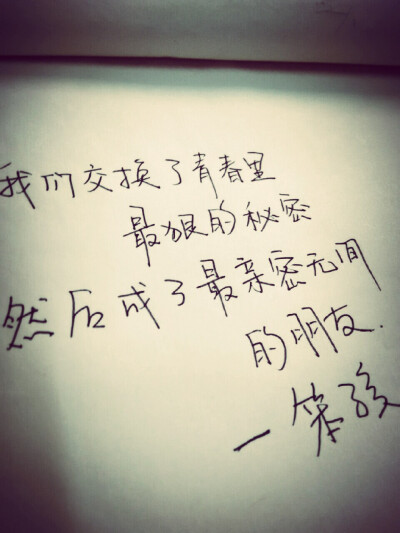 我们交换了青春里
最狠的秘密
然后成了最亲密无间
的朋友.
一笨孩